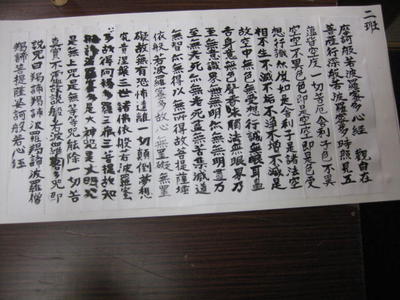 二班
摩訶般若波羅蜜多心經 觀自在
菩薩行深般若波羅蜜多時照見五
蘊皆空度一切苦厄舍利子色不異
空空不異色色即是空空即是色受
想行識亦復如是舍利子是諸法空
相不生不滅不垢不淨不增不減是
故空中無色無受想行識無眼耳鼻
舌身意無色聲香味觸法無眼界乃
至無意識界無無明亦無無明盡乃
至無老死亦無老死盡無苦集滅道
無智亦無得以無所得故菩提薩埵
依般若波羅蜜多故心無罣礙無罣
礙故無有恐怖遠離一切顛倒夢想
究竟涅槃三世諸佛依般若波羅蜜
多故得阿耨多羅三藐三菩提故知
般若波羅蜜多是大神咒是大明咒
是無上咒是無等等咒能除一切苦
真實不虛故說般若波羅蜜多咒即
說咒曰揭諦揭諦波羅揭諦波羅僧
揭諦菩提薩婆訶般若心經